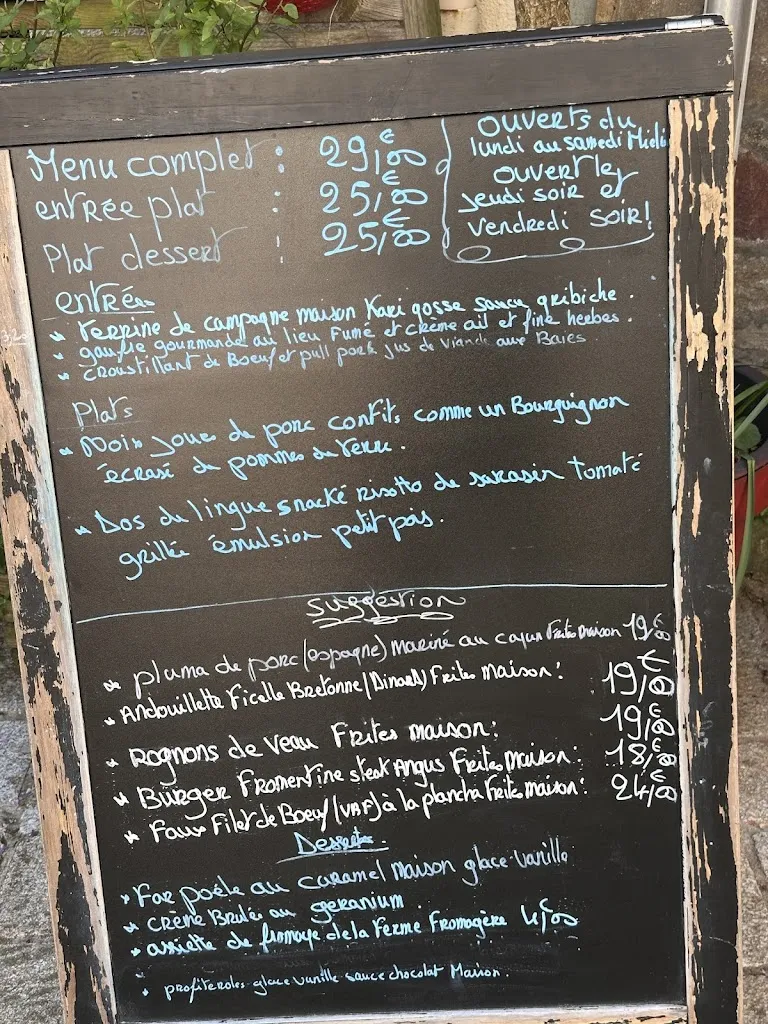 Menu complet : 29,00€
entrée plat : 25,00€
Plat dessert : 25,00€
ouverts du
lundi au samedi Midi
ouvert le
jeudi soir et
vendredi soir!
entrées
terrine de campagne maison Kari gosse sauce gribiche.
gaufre gourmande au lieu Fumé et crème ail et fine herbes.
croustillant de Boeuf et pull pork jus de viande aux Baies
Plats
Noix joues de porc confits comme un Bourguignon
écrasé de pommes de terre.
Dos de lingue snacké risotto de sarasin tomate
grillée émulsion petit pois.
suggestion
pluma de porc (espagne) mariné au cajun Frites maison 19,00€
Andouillette Ficelle Bretonne (Dinard) Frites Maison: 19,00€
Rognons de veau Frites maison: 19,00€
Burger Fromentine steak Angus Frites Maison: 18,00€
Faux Filet de Boeuf (VBF) à la plancha Frites maison: 24,00€
Desserts.
Far poêlé au caramel maison glace vanille
crème Brulée au geranium.
assiette de fromage de la Ferme Fromagère 4,00
profiteroles glace vanille sauce chocolat Maison.